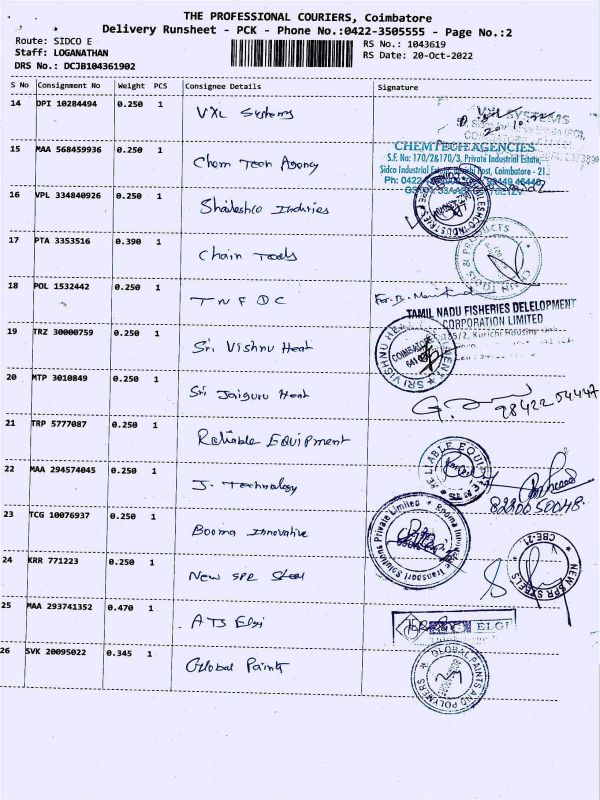 THE PROFESSIONAL COURIERS, Coimbatore
Delivery Runsheet - PCK - Phone No.:0422-3505555 - Page No.:2
Route: SIDCO E
RS No.: 1043619
Staff: LOGANATHAN
RS Date: 20-Oct-2022
DRS No.: DCJB104361902
S No Consignment No Weight PCS Consignee Details Signature
14 DPI 10284494 0.250 1 VXL Systems
VXL SYSTEMS
15 MAA 568459936 0.250 1 Chem Tech Agency
CHEMTECH AGENCIES
S.F. No: 170/2&170/3, Private Industrial Estate,
Sidco Industrial Estate, Post, Coimbatore - 21.
Ph: 0422
16 VPL 334840926 0.250 1 Shaileshco Industries
SHAILESHCO INDUSTRIES
17 PTA 3353516 0.390 1 Chain Tools
CHAIN TOOLS & PRODUCTS
18 POL 1532442 0.250 1 TNFDC
TAMIL NADU FISHERIES DELELOPMENT
CORPORATION LIMITED
Kurichi Housing
19 TRZ 30000759 0.250 1 Sri Vishnu Heat
SRI VISHNU HEAT
COIMBATORE
641
20 MTP 3010849 0.250 1 Sri Jaiguru Heat
98422 54447
21 TRP 5777087 0.250 1 Reliable Equipment
RELIABLE EQUIP
22 MAA 294574045 0.250 1 J. Technology
82200 50048
23 TCG 10076937 0.250 1 Booma Innovative
Booma Innovative Transport Solutions Private Limited
24 KRR 771223 0.250 1 New SPR Steel
NEW SPR STEELS
CBE-21
25 MAA 293741352 0.470 1 ATS Elgi
ELGI
26 SVK 20095022 0.345 1 Global Paints
GLOBAL PAINTS AND POLYMERS